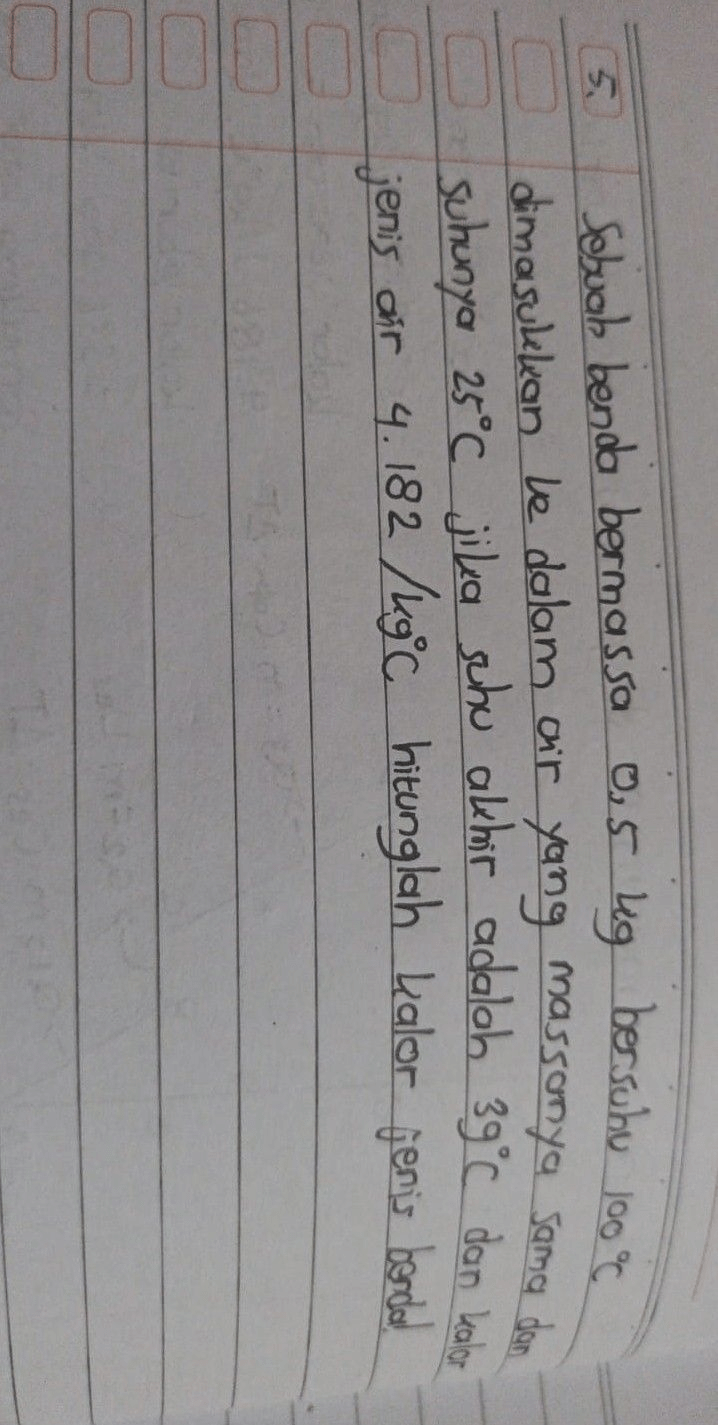 5. Sebuah benda bermassa 0,5 kg bersuhu 100°C
dimasukkan ke dalam air yang massanya sama dan
suhunya 25°C jika suhu akhir adalah 39°C dan kalor
jenis air 4.182 /kg°C hitunglah kalor jenis benda!